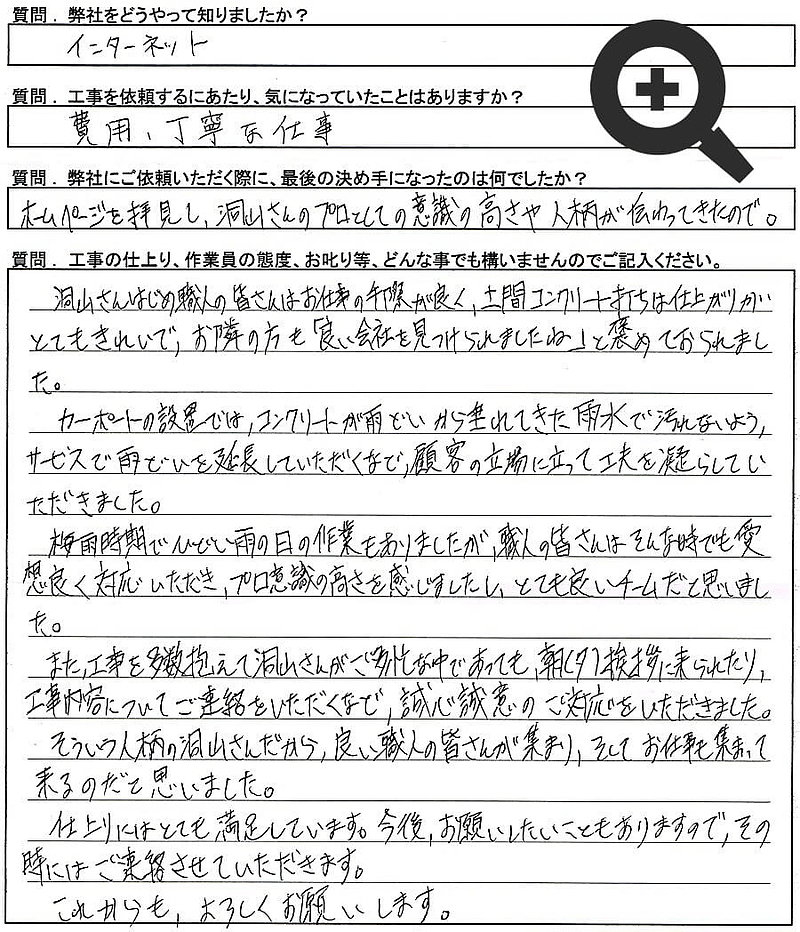 質問．弊社をどうやって知りましたか？
インターネット
質問．工事を依頼するにあたり、気になっていたことはありますか？
費用、丁寧な仕事
質問．弊社にご依頼いただく際に、最後の決め手になったのは何でしたか？
ホームページを拝見し、洞山さんのプロとしての意識の高さや人柄が伝わってきたので。
質問．工事の仕上り、作業員の態度、お叱り等、どんな事でも構いませんのでご記入ください。
洞山さんはじめ職人の皆さんはお仕事の手際が良く、土間コンクリート打ちは仕上がりがい
とてもきれいで、お隣の方も「良い会社を見つけられましたね」と褒めておられまし
た。
カーポートの設置では、コンクリートが雨どいから垂れてきた雨水で汚れないよう、
サービスで雨どいを延長していただくなど、顧客の立場に立って工夫を凝らしてい
ただきました。
梅雨時期でひどい雨の日の作業もありましたが、職人の皆さんはそんな時でも愛
想良く対応いただき、プロ意識の高さを感じましたし、とても良いチームだと思いまし
た。
また、工事を多数抱えて洞山さんがご多忙な中であっても、朝(夕)挨拶に来られたり、
工事内容についてご連絡をいただくなど、誠心誠意のご対応をいただきました。
そういう人柄の洞山さんだから、良い職人の皆さんが集まり、そしてお仕事も集まって
来るのだと思いました。
仕上りにはとても満足しています。今後、お願いしたいこともありますので、その
時にはご連絡させていただきます。
これからも、よろしくお願いします。